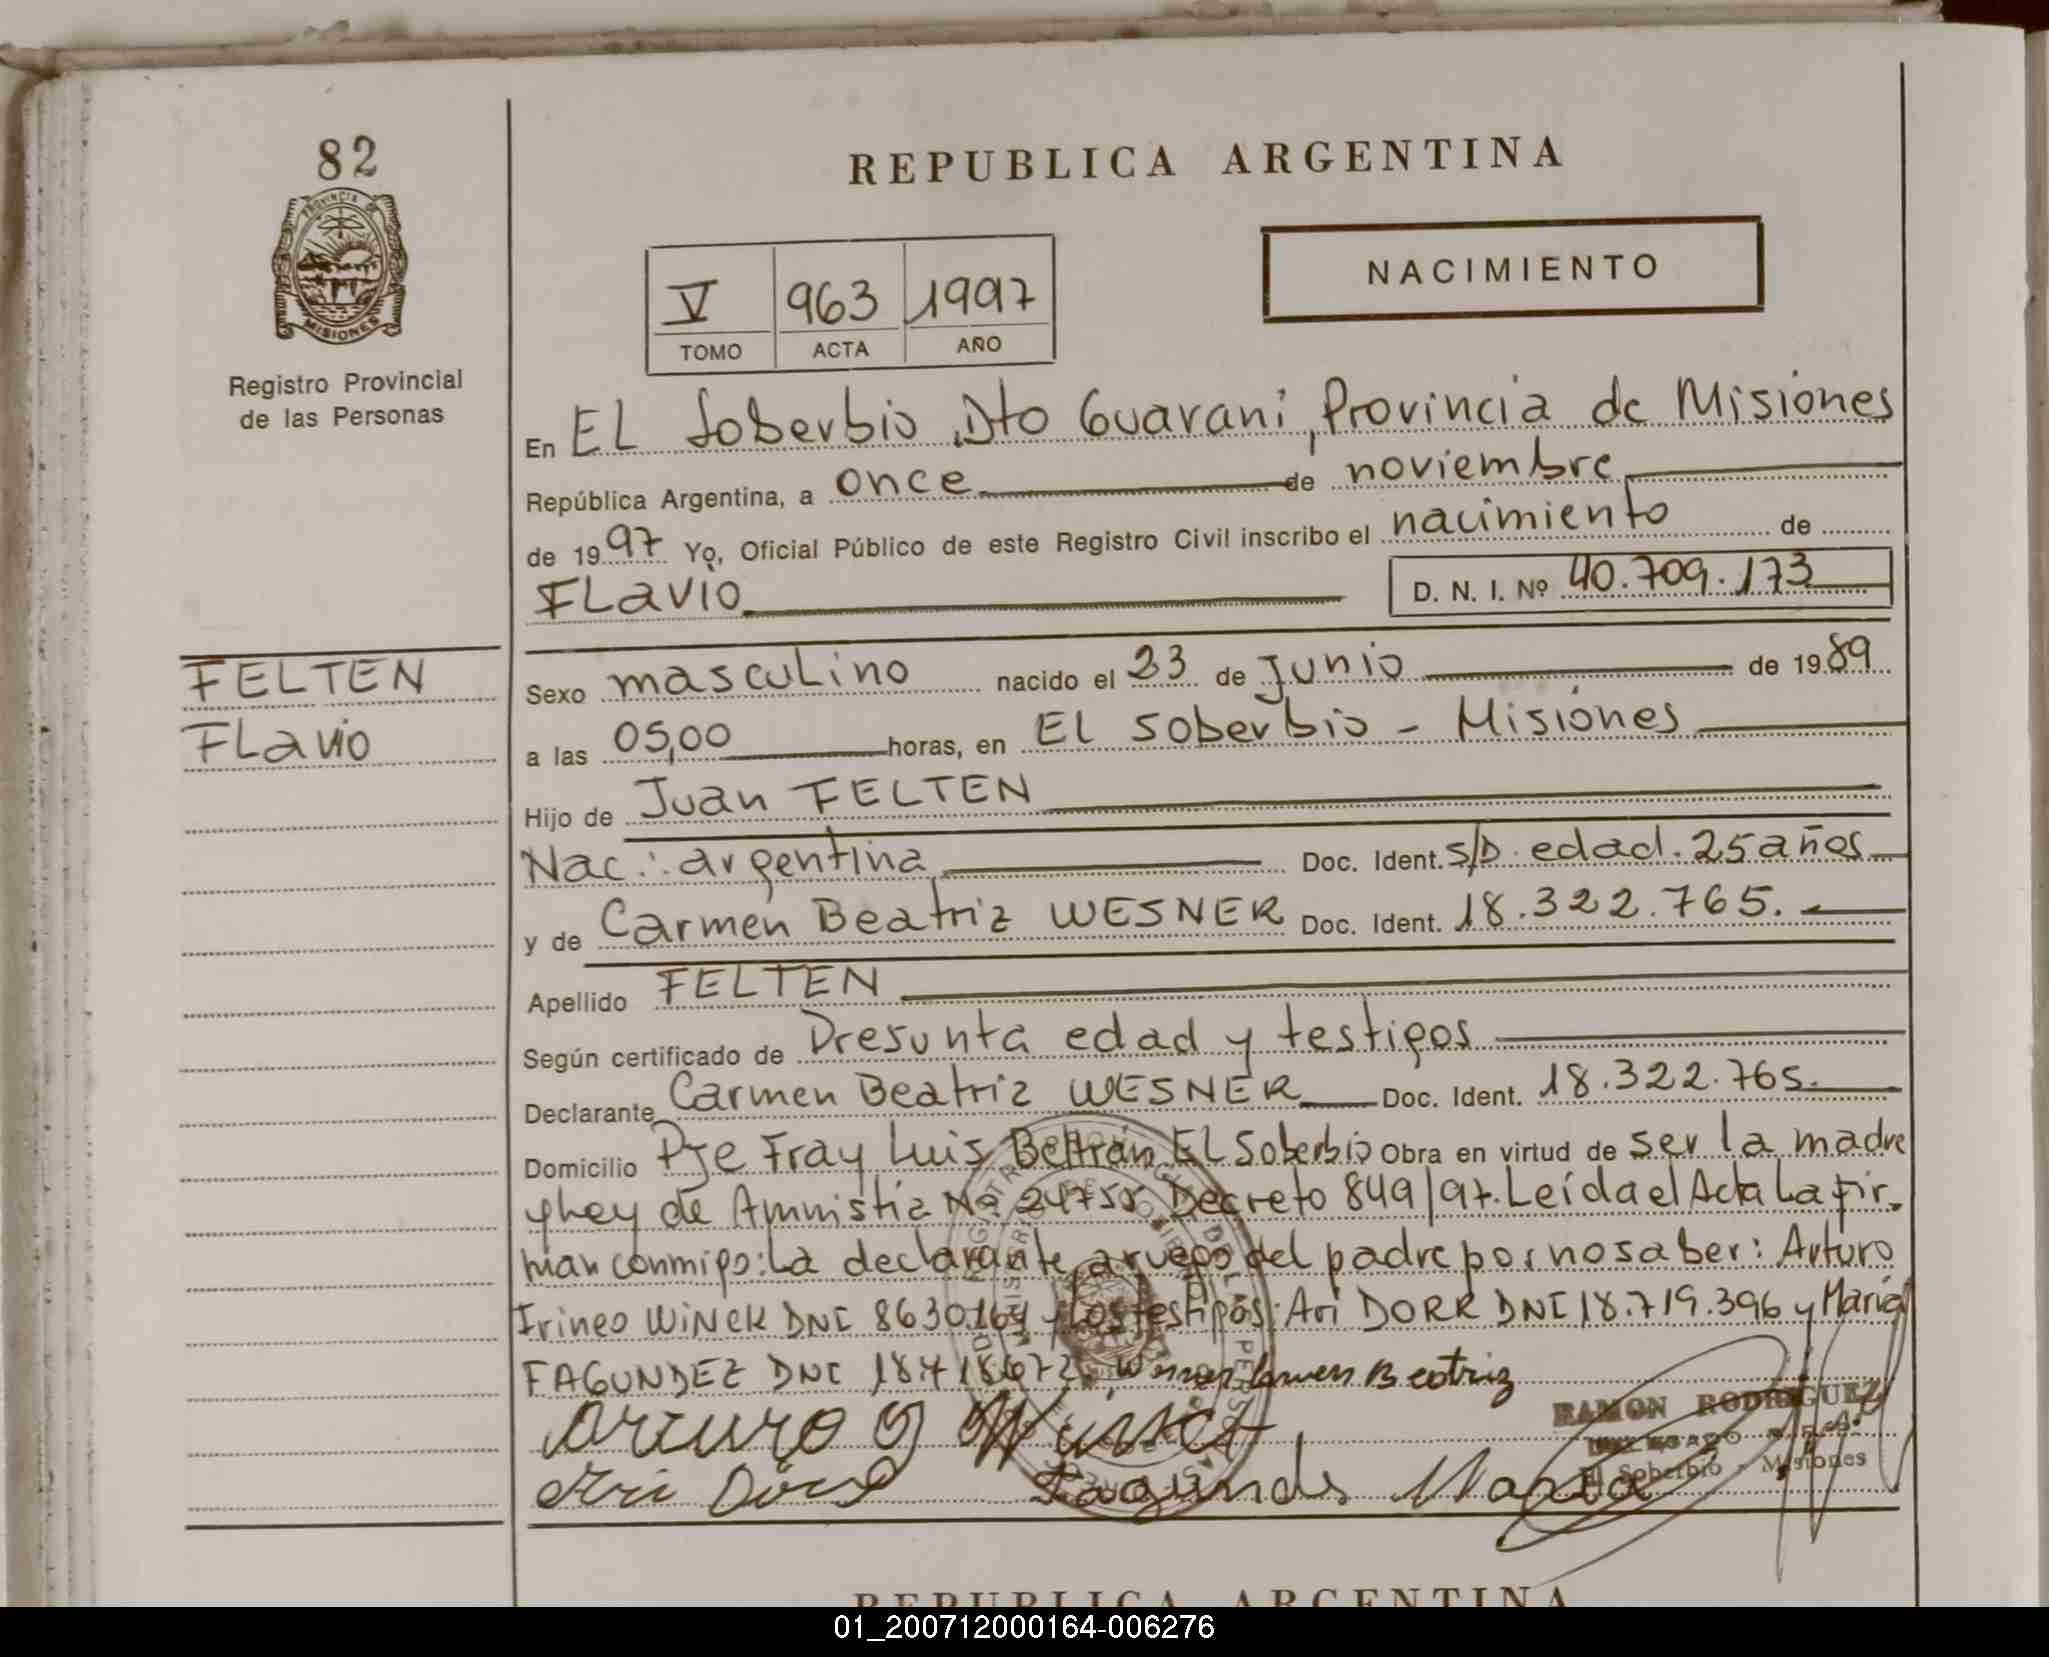 82
PROVINCIA DE
MISIONES
Registro Provincial
de las Personas
REPUBLICA ARGENTINA
NACIMIENTO
V 963 1997
TOMO ACTA AÑO
En EL Soberbio, Dto Guarani, Provincia de Misiones
República Argentina, a once de noviembre
de 1997 Yo, Oficial Público de este Registro Civil inscribo el nacimiento de
FLavio D. N. I. Nº 40.709.173
FELTEN
FLavio
Sexo masculino nacido el 23 de Junio de 1989
a las 05,00 horas, en EL Soberbio - Misiones
Hijo de Juan FELTEN
Nac.: argentina Doc. Ident. S/D. edad. 25 años
y de Carmen Beatriz WESNER Doc. Ident. 18.322.765.
Apellido FELTEN
Según certificado de Presunta edad y testigos
Declarante Carmen Beatriz WESNER Doc. Ident. 18.322.765.
Domicilio Pje Fray Luis Beltrán EL Soberbio Obra en virtud de ser la madre
y Ley de Amnistia Nº 24755 Decreto 849/97. Leída el Acta La fir-
man conmigo: La declarante, a ruego del padre por no saber: Arturo
Irineo WINCK DNI 8630.164 y Los testigos: Ari DORR DNI 18.719.396 y María
FAGUNDEZ DNI Beatriz
Arturo
Ari Dorr Fagundes Maria
RAMON RODRIGUEZ
El Soberbio - Misiones
REPUBLICA ARGENTINA
01_200712000164-006276